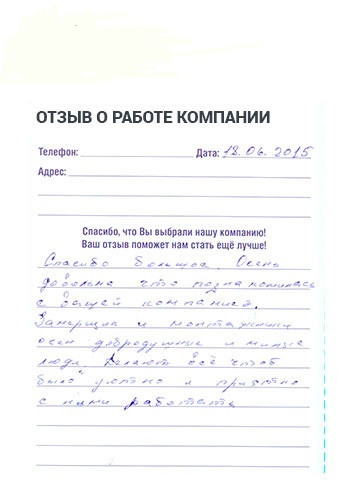 ОТЗЫВ О РАБОТЕ КОМПАНИИ
Телефон: Дата: 18.06.2015
Адрес:
Спасибо, что Вы выбрали нашу компанию!
Ваш отзыв поможет нам стать ещё лучше!
Спасибо большое. Очень
довольна что познакомилась
с вашей компанией.
Замерщик и монтажники
очен добродушные и милые
люди. Делают всё чтоб
было уютно и приятно
с ними работать